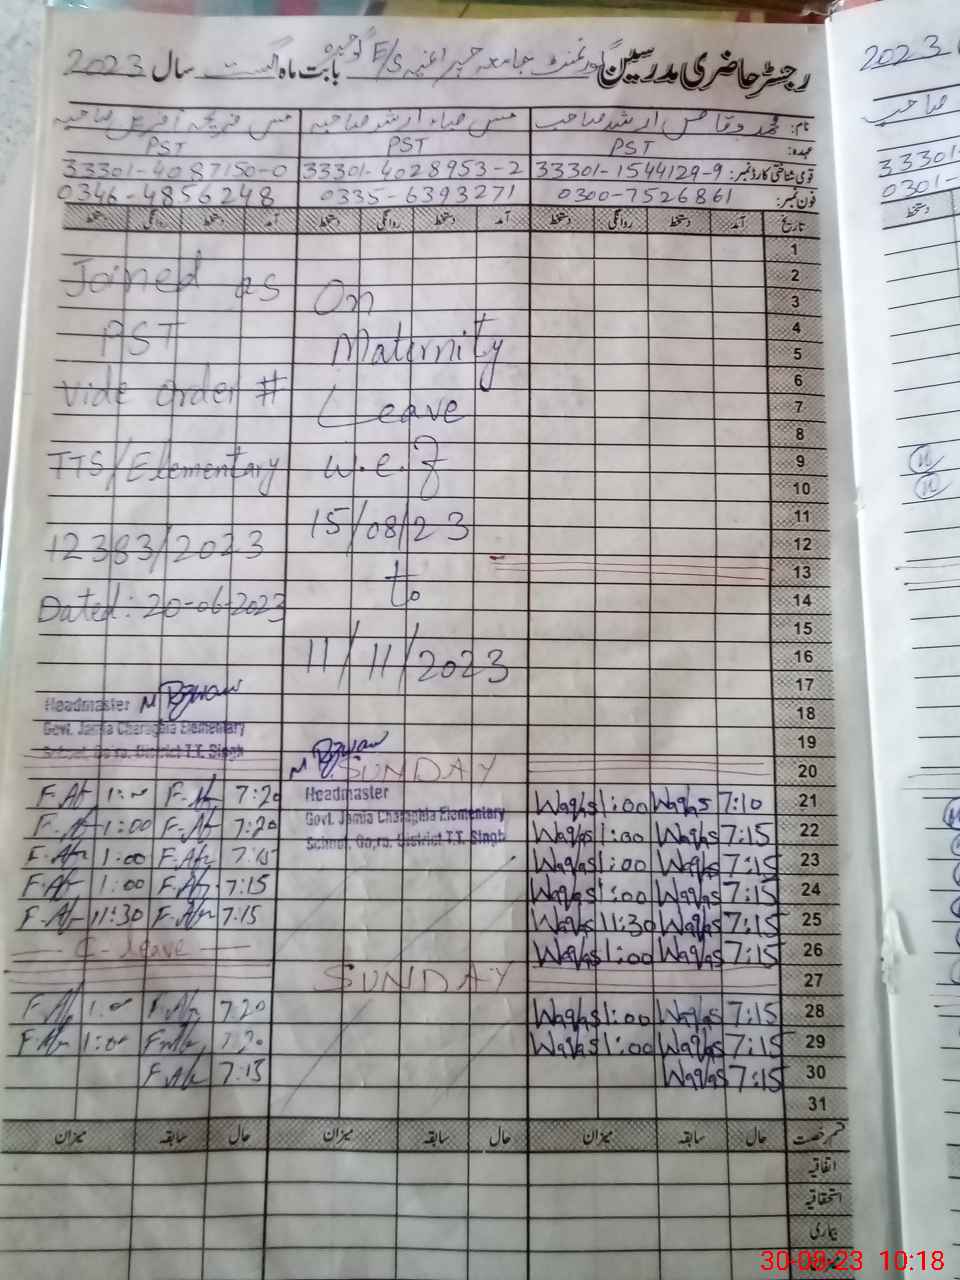 رجسٹر حاضری مدرسین گورنمنٹ جامعہ چراغیہ E/S گوجرہ بابت ماہ اگست سال 2023
نام: محمد وقاص ارشد صاحب مس صباء ارشد صاحبہ مس فریحہ آفرین صاحبہ
عہدہ: PST PST PST
قومی شناختی کارڈ نمبر: 33301-1544129-9 33301-4028953-2 33301-4087150-0
فون نمبر: 0300-7526861 0335-6393271 0346-4856248
تاریخ آمد دستخط روانگی دستخط آمد دستخط روانگی دستخط دستخط روانگی دستخط
1
2
3
4
5
6
7
8
9
10
11
12
13
14
15
16
17
18
19
20
21
22
23
24
25
26
27
28
29
30
31
Joined as
PST
vide order #
TTS/Elementary
12383/2023
Dated: 20-06-2023
Headmaster
Govt. Jamia Charaghia Elementary
School, Go,ra. District T.T. Singh
On
Maternity
Leave
w.e.f
15/08/23
to
11/11/2023
SUNDAY
Headmaster
Govt. Jamia Charaghia Elementary
School, Go,ra. District T.T. Singh
SUNDAY
F.Af 1:00 F.Af 7:20
F.Af 1:00 F.Af 7:20
F.Af 1:00 F.Af 7:15
F.Af 1:00 F.Af 7:15
F.Af 11:30 F.Af 7:15
C-leave
F.Af 1:00 F.Af 7:20
F.Af 1:00 F.Af 7:20
F.Af 7:15
Waqas 1:00 Waqas 7:10
Waqas 1:00 Waqas 7:15
Waqas 1:00 Waqas 7:15
Waqas 1:00 Waqas 7:15
Waqas 11:30 Waqas 7:15
Waqas 1:00 Waqas 7:15
Waqas 1:00 Waqas 7:15
Waqas 1:00 Waqas 7:15
Waqas 7:15
قسم رخصت حال سابقہ میزان حال سابقہ میزان حال سابقہ میزان
اتفاقیہ
استحقاقیہ
بیماری
میزان
2023
صاحب
33301-
0301-
دستخط
30-08-23 10:18